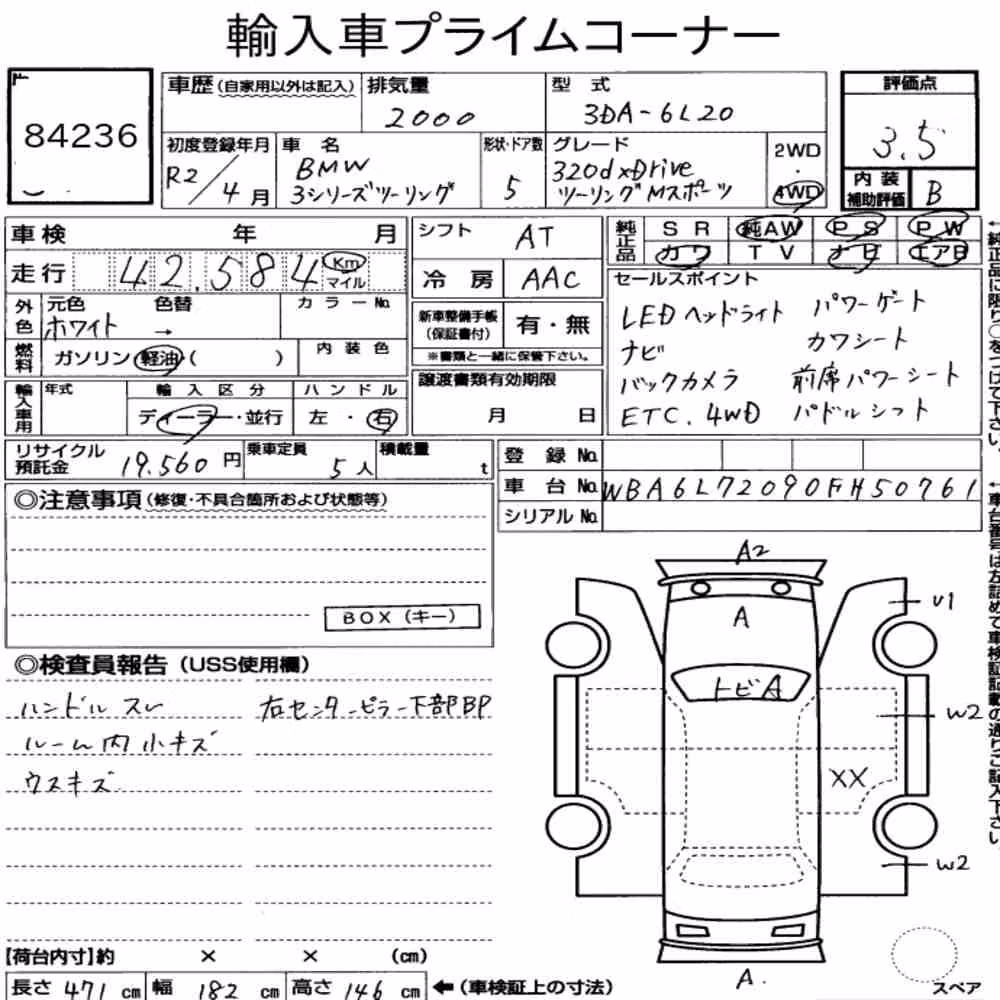 輸入車プライムコーナー
84236
車歴(自家用以外は記入) 排気量 2000 型式 3DA-6L20 評価点 3.5
初度登録年月 R2/4月 車名 BMW 3シリーズツーリング 形状・ドア数 5 グレード 320d xDrive ツーリング Mスポーツ 2WD・4WD
内装補助評価 B
車検 年 月 シフト AT 純正品 SR 純AW PS PW
走行 42,584 Km マイル 冷房 AAC カワ TV ナビ エアB
外色 元色 ホワイト 色替 → カラーNo. 新車整備手帳(保証書付) 有・無
※書類と一緒に保管下さい。
燃料 ガソリン 軽油 ( ) 内装色
輸入車用 年式 輸入区分 ディーラー・並行 ハンドル 左・右 譲渡書類有効期限 月 日
セールスポイント
LEDヘッドライト パワーゲート
ナビ カワシート
バックカメラ 前席パワーシート
ETC. 4WD パドルシフト
リサイクル預託金 19.560円 乗車定員 5人 積載量 t
登録No.
車台No. WBA6L72090FH50761
シリアルNo.
◎注意事項(修復・不具合箇所および状態等)
BOX(キー)
◎検査員報告(USS使用欄)
ハンドルスレ 右センターピラー下部BP
ルーム内小キズ
ウスキズ
A2
A
U1
トビA
W2
XX
W2
A
スペア
【荷台内寸】約 × × (cm)
長さ 471 cm 幅 182 cm 高さ 146 cm ←(車検証上の寸法)
←純正品に限り○をつけて下さい。
←車台番号は左詰めで車検証記載の通りご記入下さい。